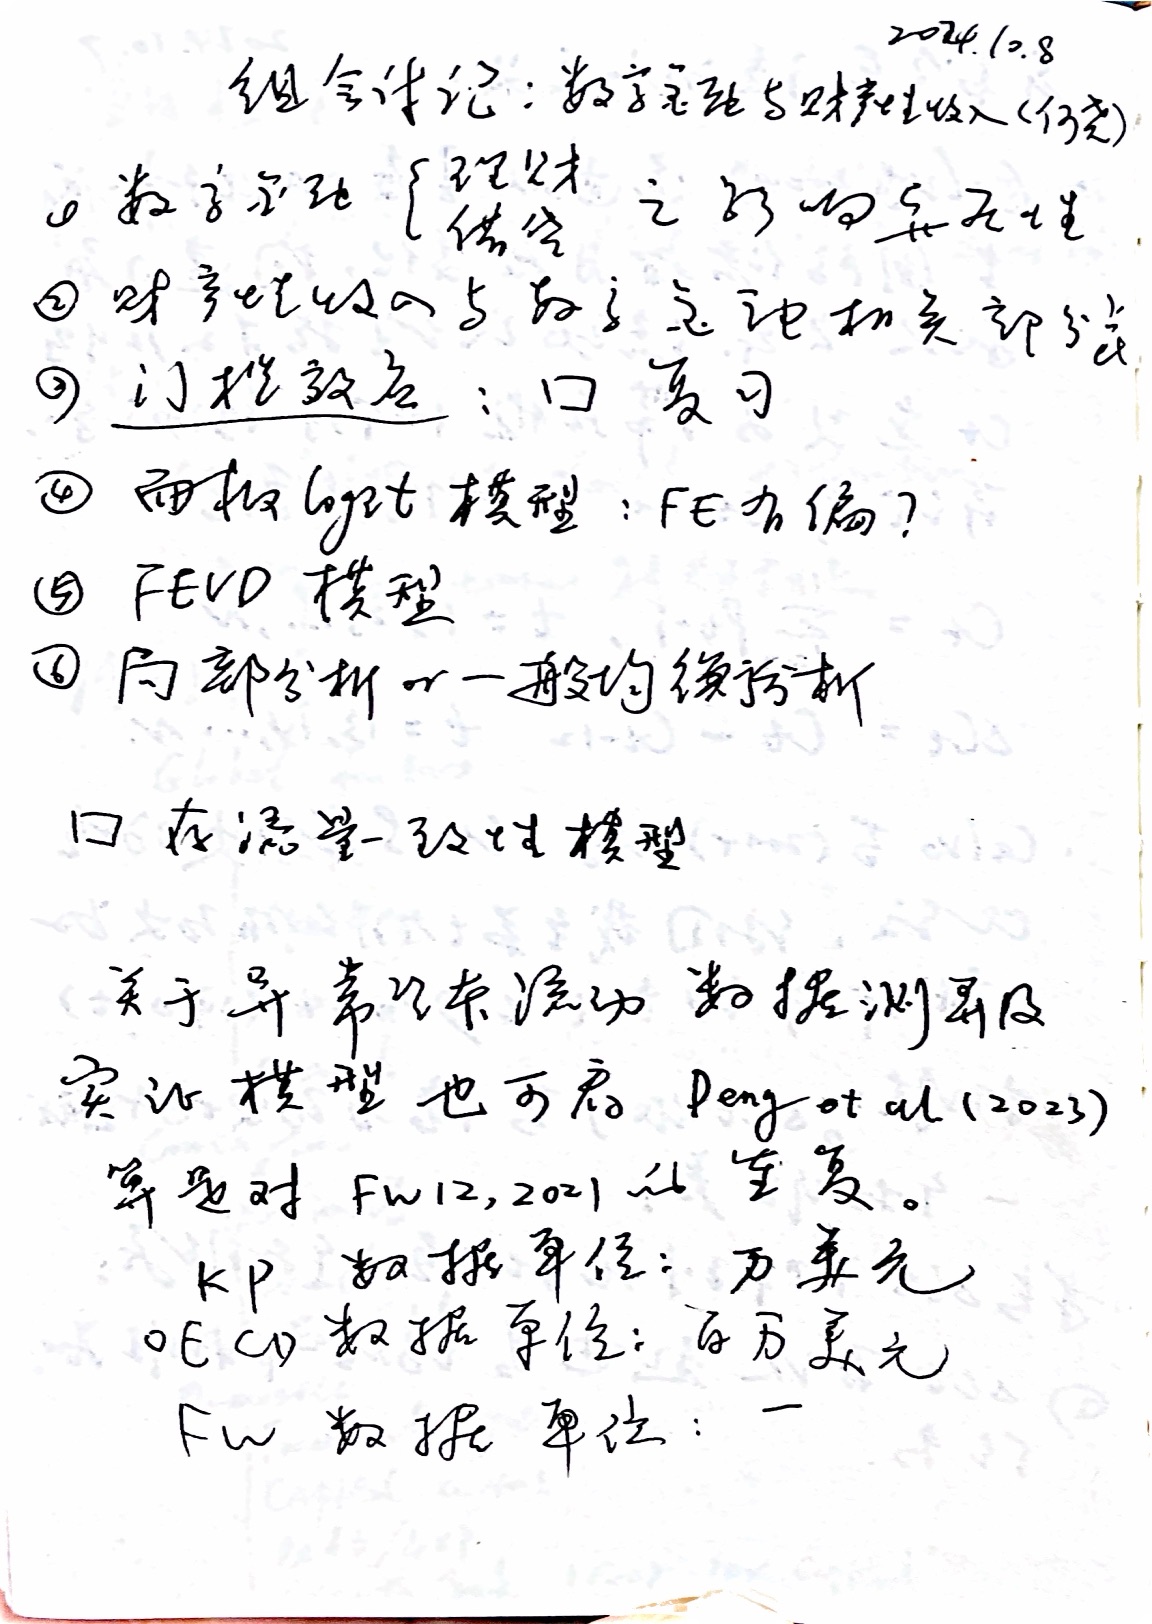 2024.10.8
组会笔记：数字金融与财产性收入（何尧）
① 数字金融 { 理财 借贷 之影响异质性
② 财产性收入与数字金融相关部分
③ 门槛效应：口 复习
④ 面板logit模型：FE有偏？
⑤ FEVD 模型
⑥ 局部分析or一般均衡分析
口 存流量一致性模型
关于异常资本流动 数据测算及
实证模型也可看 Peng et al (2023)
算是对 FW12,2021 的重复。
KP 数据单位：万美元
OECD数据单位：百万美元
FW 数据单位：一